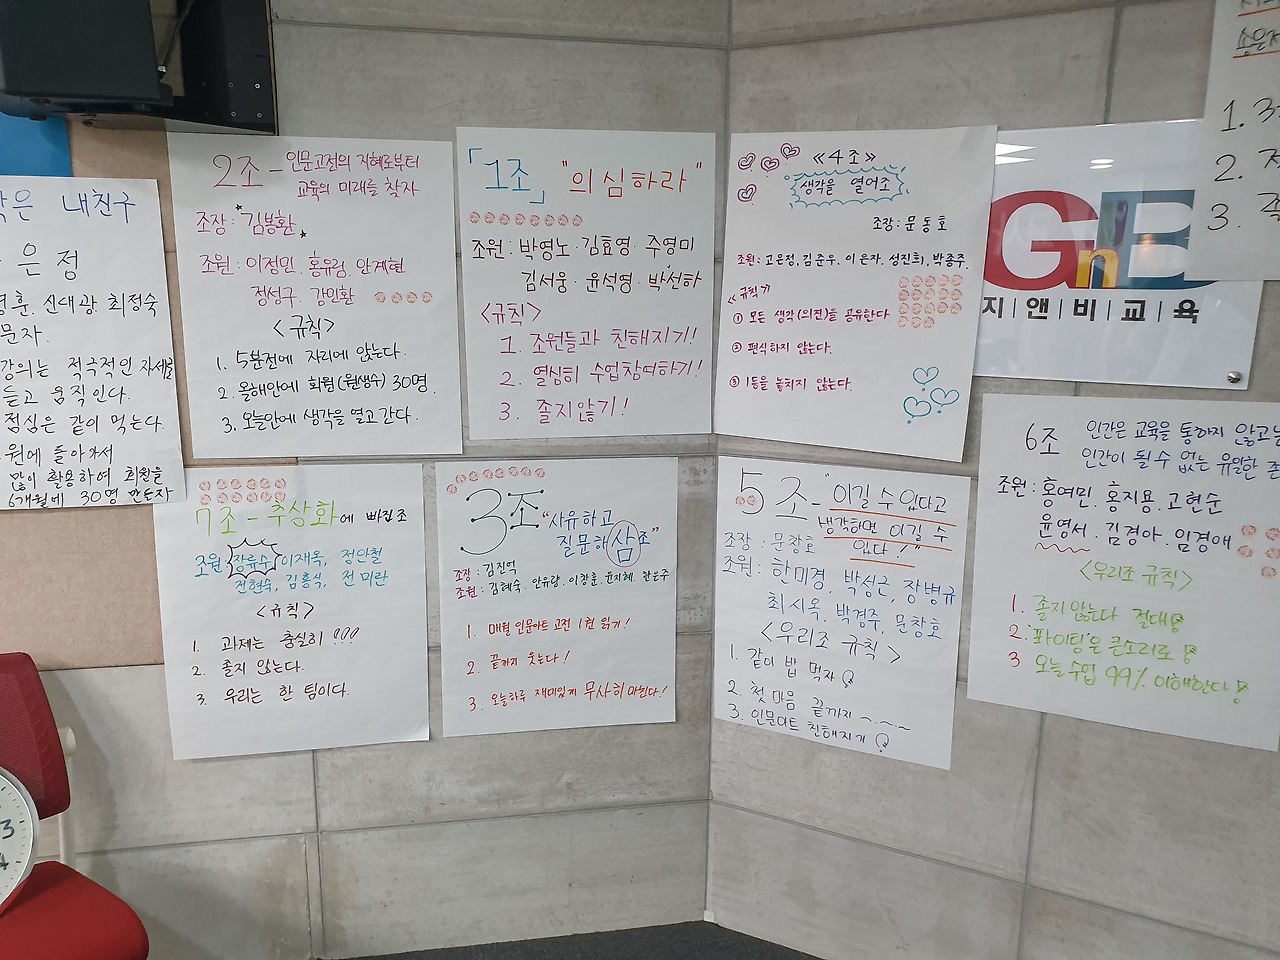 내친구
은정
신대광. 최정숙
문자.
강의는 적극적인 자세로
듣고 움직인다.
점심은 같이 먹는다.
원에 돌아가서
많이 활용하여 회원을
6개월에 30명 만든다
2조 - 인문고전의 지혜로부터
교육의 미래를 찾자
조장 : 김봉환
조원 : 이정민. 홍유림. 안계현
정성구. 강민환
<규칙>
1. 5분전에 자리에 앉는다.
2. 올해안에 회원(원생수) 30명.
3. 오늘안에 생각을 열고 간다.
「1조」 "의심하라"
조원 : 박영노 · 김효영 · 주영미
김서웅 · 윤석영 · 박선하
<규칙>
1. 조원들과 친해지기!!
2. 열심히 수업참여하기!
3. 졸지않기!
≪4조≫
생각을 열어조
조장 : 문동호
조원 : 고은정, 김준우, 이은자, 성진희, 박종주.
≪규칙≫
① 모든 생각(의견)을 공유한다
② 편식하지 않는다.
③ 1등을 놓치지 않는다.
GnB
지|앤|비|교|육
1. 3
2.
3.
7조 - 추상화에 빠진조
조원 장류수, 이재옥, 정안철
전현숙, 김홍식, 전미란
<규칙>
1. 과제는 충실히 !!!
2. 졸지 않는다.
3. 우리는 한 팀이다.
3조 "사유하고
질문하삼조"
조장 : 김진억
조원 : 김혜숙. 안유량. 이창훈. 윤지혜.
1. 매월 인문아트 고전 1권 읽기!
2. 끝까지 웃는다!
3. 오늘하루 재미있게 무사히 마친다!
5조 - "이길 수 있다고
생각하면 이길 수
있다!"
조장 : 문창호
조원 : 한미경, 박성근, 장병규
최시옥, 박경주, 문창호
<우리조 규칙>
1. 같이 밥 먹자!
2. 첫 마음 끝까지 ~.~.~
3. 인문아트 친해지기!
6조 인간은 교육을 통하지 않고는
인간이 될 수 없는 유일한 존
조원 : 홍여민. 홍지용. 고현순
윤영서. 김경아. 임경애
<우리조 규칙>
1. 졸지 않는다 절대!
2. '파이팅'은 큰소리로!
3 오늘 수업 99% 이해한다!
3
4